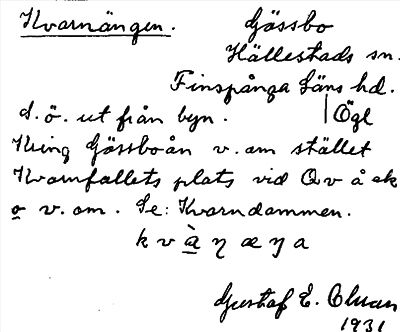 Kvarnängen. Gössbo
Hällestads sn.
Finspånga läns hd.
d. ö. ut från byn. Ögl
Kring Gössboån v. om stället
Kvarnfallets plats vid Q v å ek
o v. om. Se: Kvarndammen.
k v à η æ η a
Gustaf E.
1931